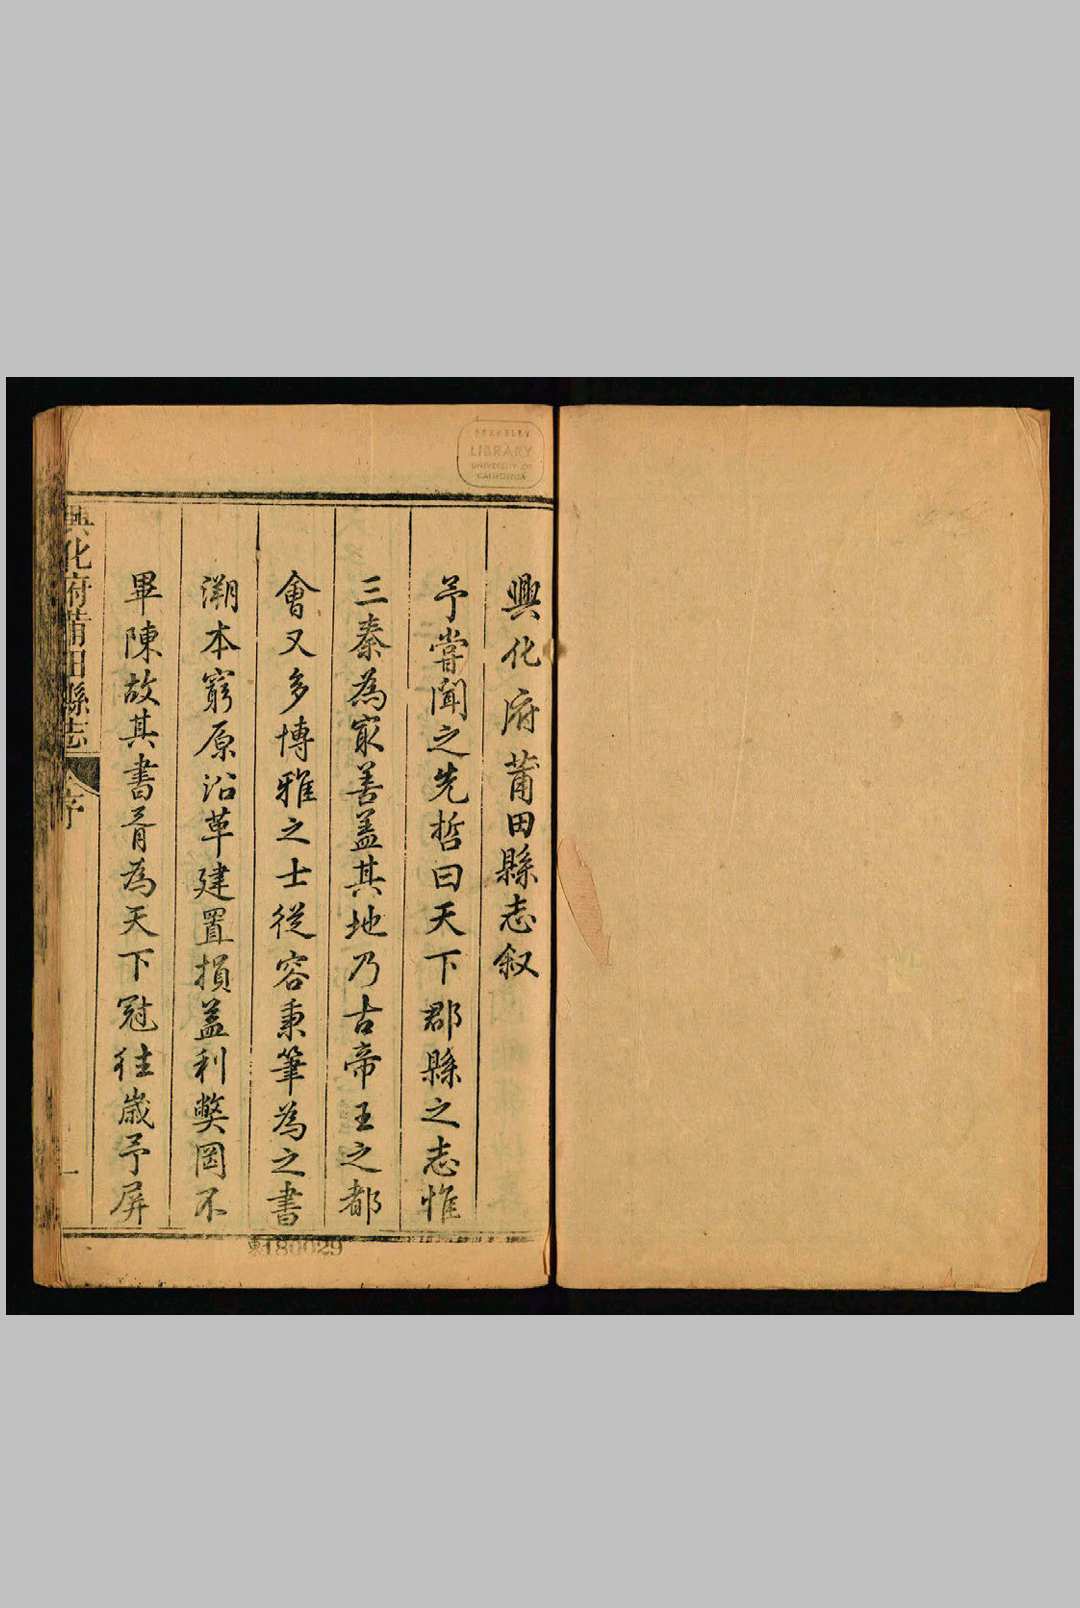 興化府莆田縣志叙
予嘗聞之先哲曰天下郡縣之志惟
三秦為冣善蓋其地乃古帝王之都
會又多博雅之士從容秉筆為之書
溯本窮原沿革建置損益利獘罔不
畢陳故其書胥為天下冠往歲予屏
興化府莆田縣志
序
一
BERKELEY
LIBRARY
UNIVERSITY OF
CALIFORNIA
180029